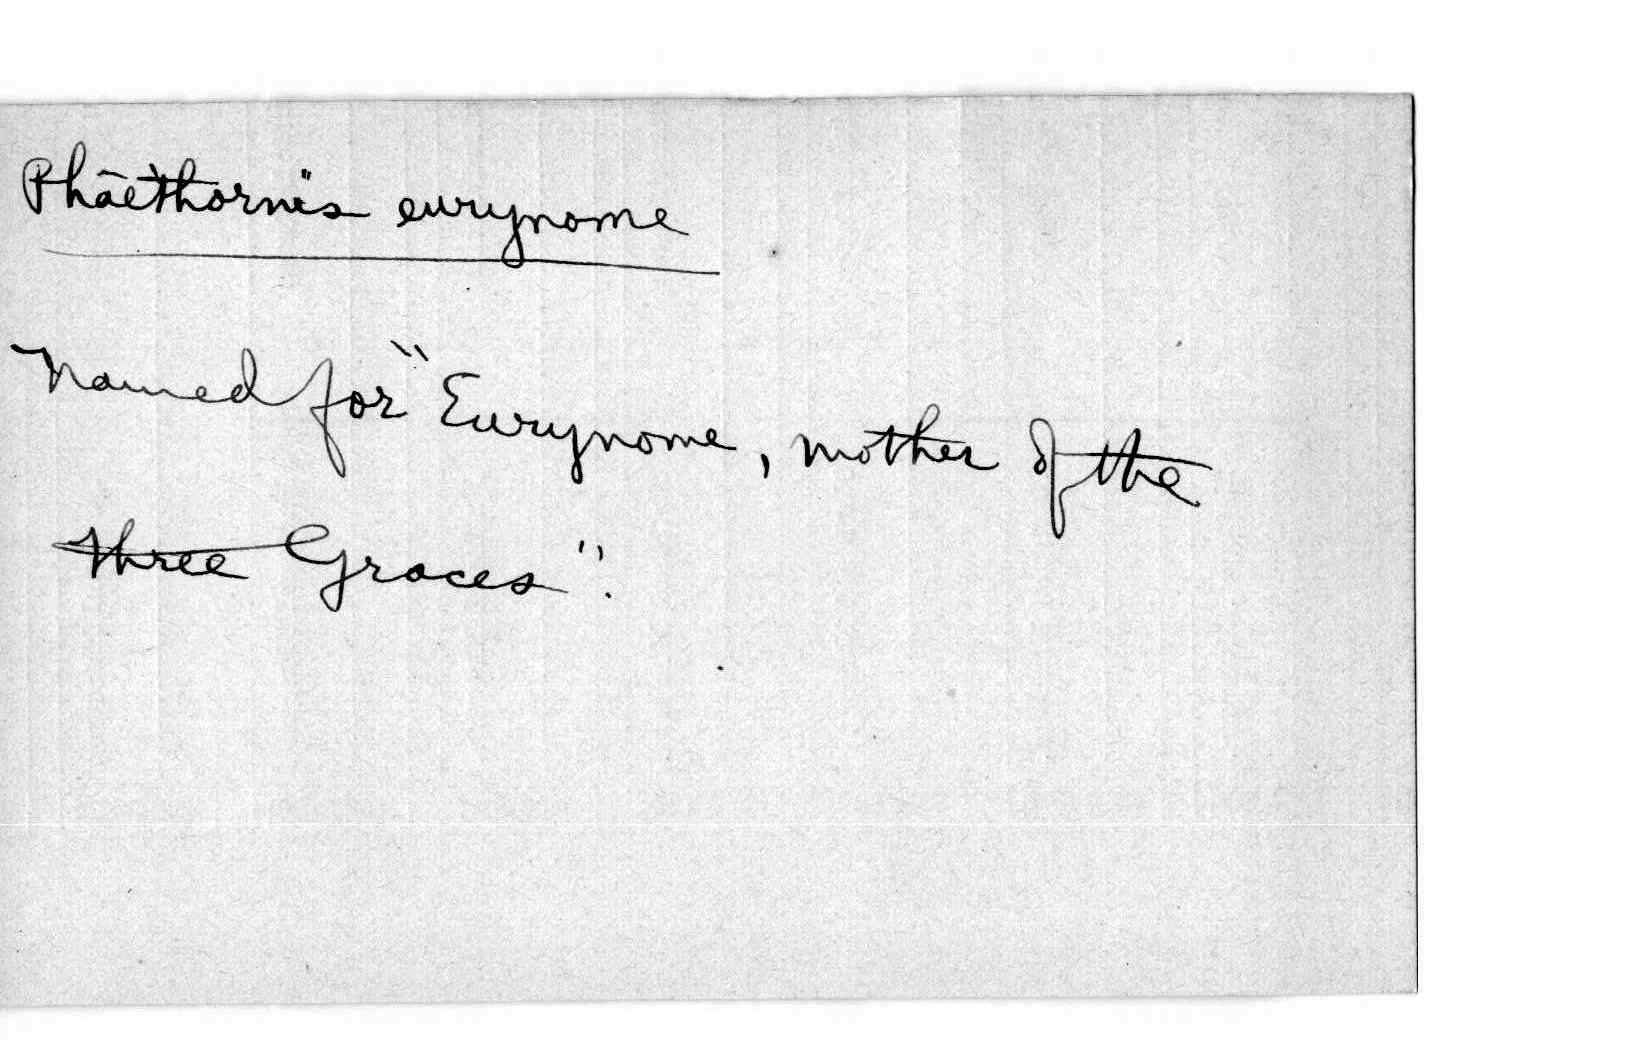 Phāethornis eurynome
Named for "Eurynome, mother of the
three Graces".